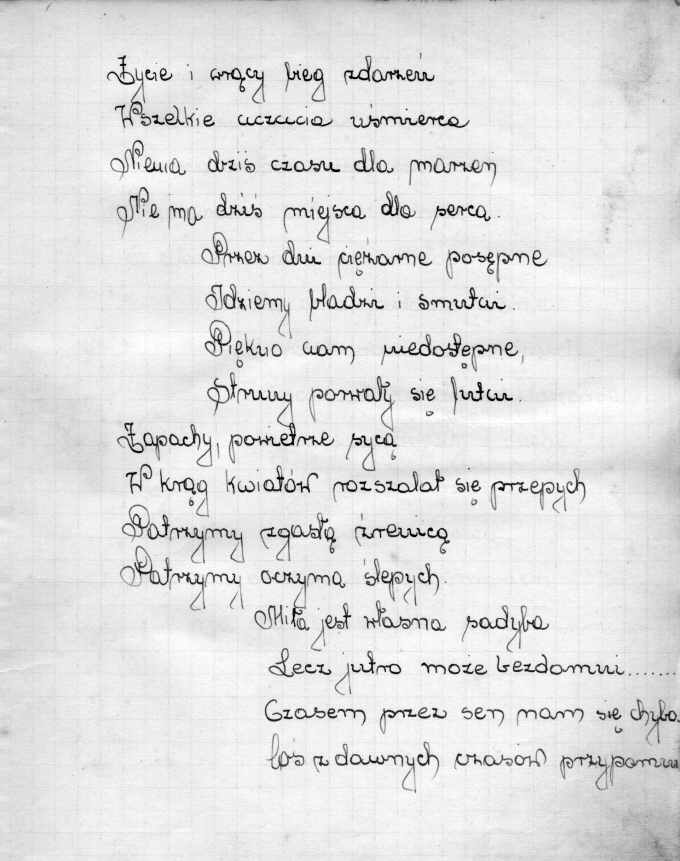 Życie i wrący bieg zdarzeń
Wszelkie uczucia uśmierca
Niema dziś czasu dla marzeń
Nie ma dziś miejsca dla serca.
Przez dni ciężarne posępne
Idziemy bladzi i smutni.
Piękno nam niedostępne,
Struny porwały się lutni.
Zapachy, powietrze sycą
W krąg kwiatów rozszalał się przepych
Patrzymy zgasłą źrenicą
Patrzymy oczyma ślepych.
Miła jest własna sadyba
Lecz jutro może bezdomni.......
Czasem przez sen nam się chyba
Coś z dawnych czasów przypomni